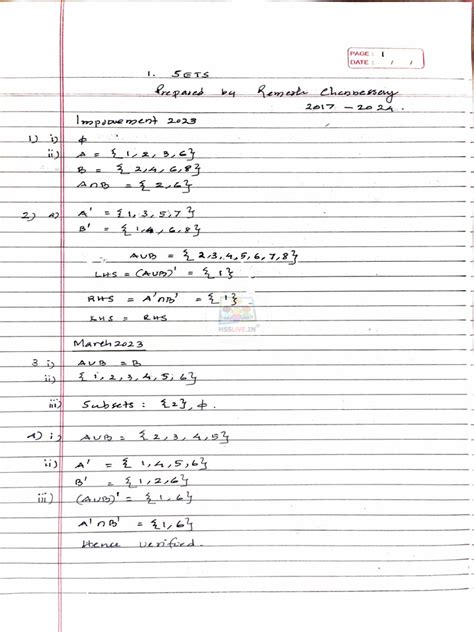 PAGE : 1
DATE : / /
1. SETS
Prepared by Remesh Chennessery
2017 - 2024.
Improvement 2023
1) i) ϕ
ii) A = {1, 2, 3, 6}
B = {2, 4, 6, 8}
A∩B = {2, 6}
2) a) A' = {1, 3, 5, 7}
B' = {1, 4, 6, 8}
A∪B = {2, 3, 4, 5, 6, 7, 8}
LHS = (A∪B)' = {1}
RHS = A'∩B' = {1}
HSSLIVE.IN
LHS = RHS
March 2023
3 i) A∪B = B
ii) {1, 2, 3, 4, 5, 6}
iii) Subsets : {2}, ϕ.
4) i) A∪B = {2, 3, 4, 5}
ii) A' = {1, 4, 5, 6}
B' = {1, 2, 6}
iii) (A∪B)' = {1, 6}
A'∩B' = {1, 6}
Hence verified.